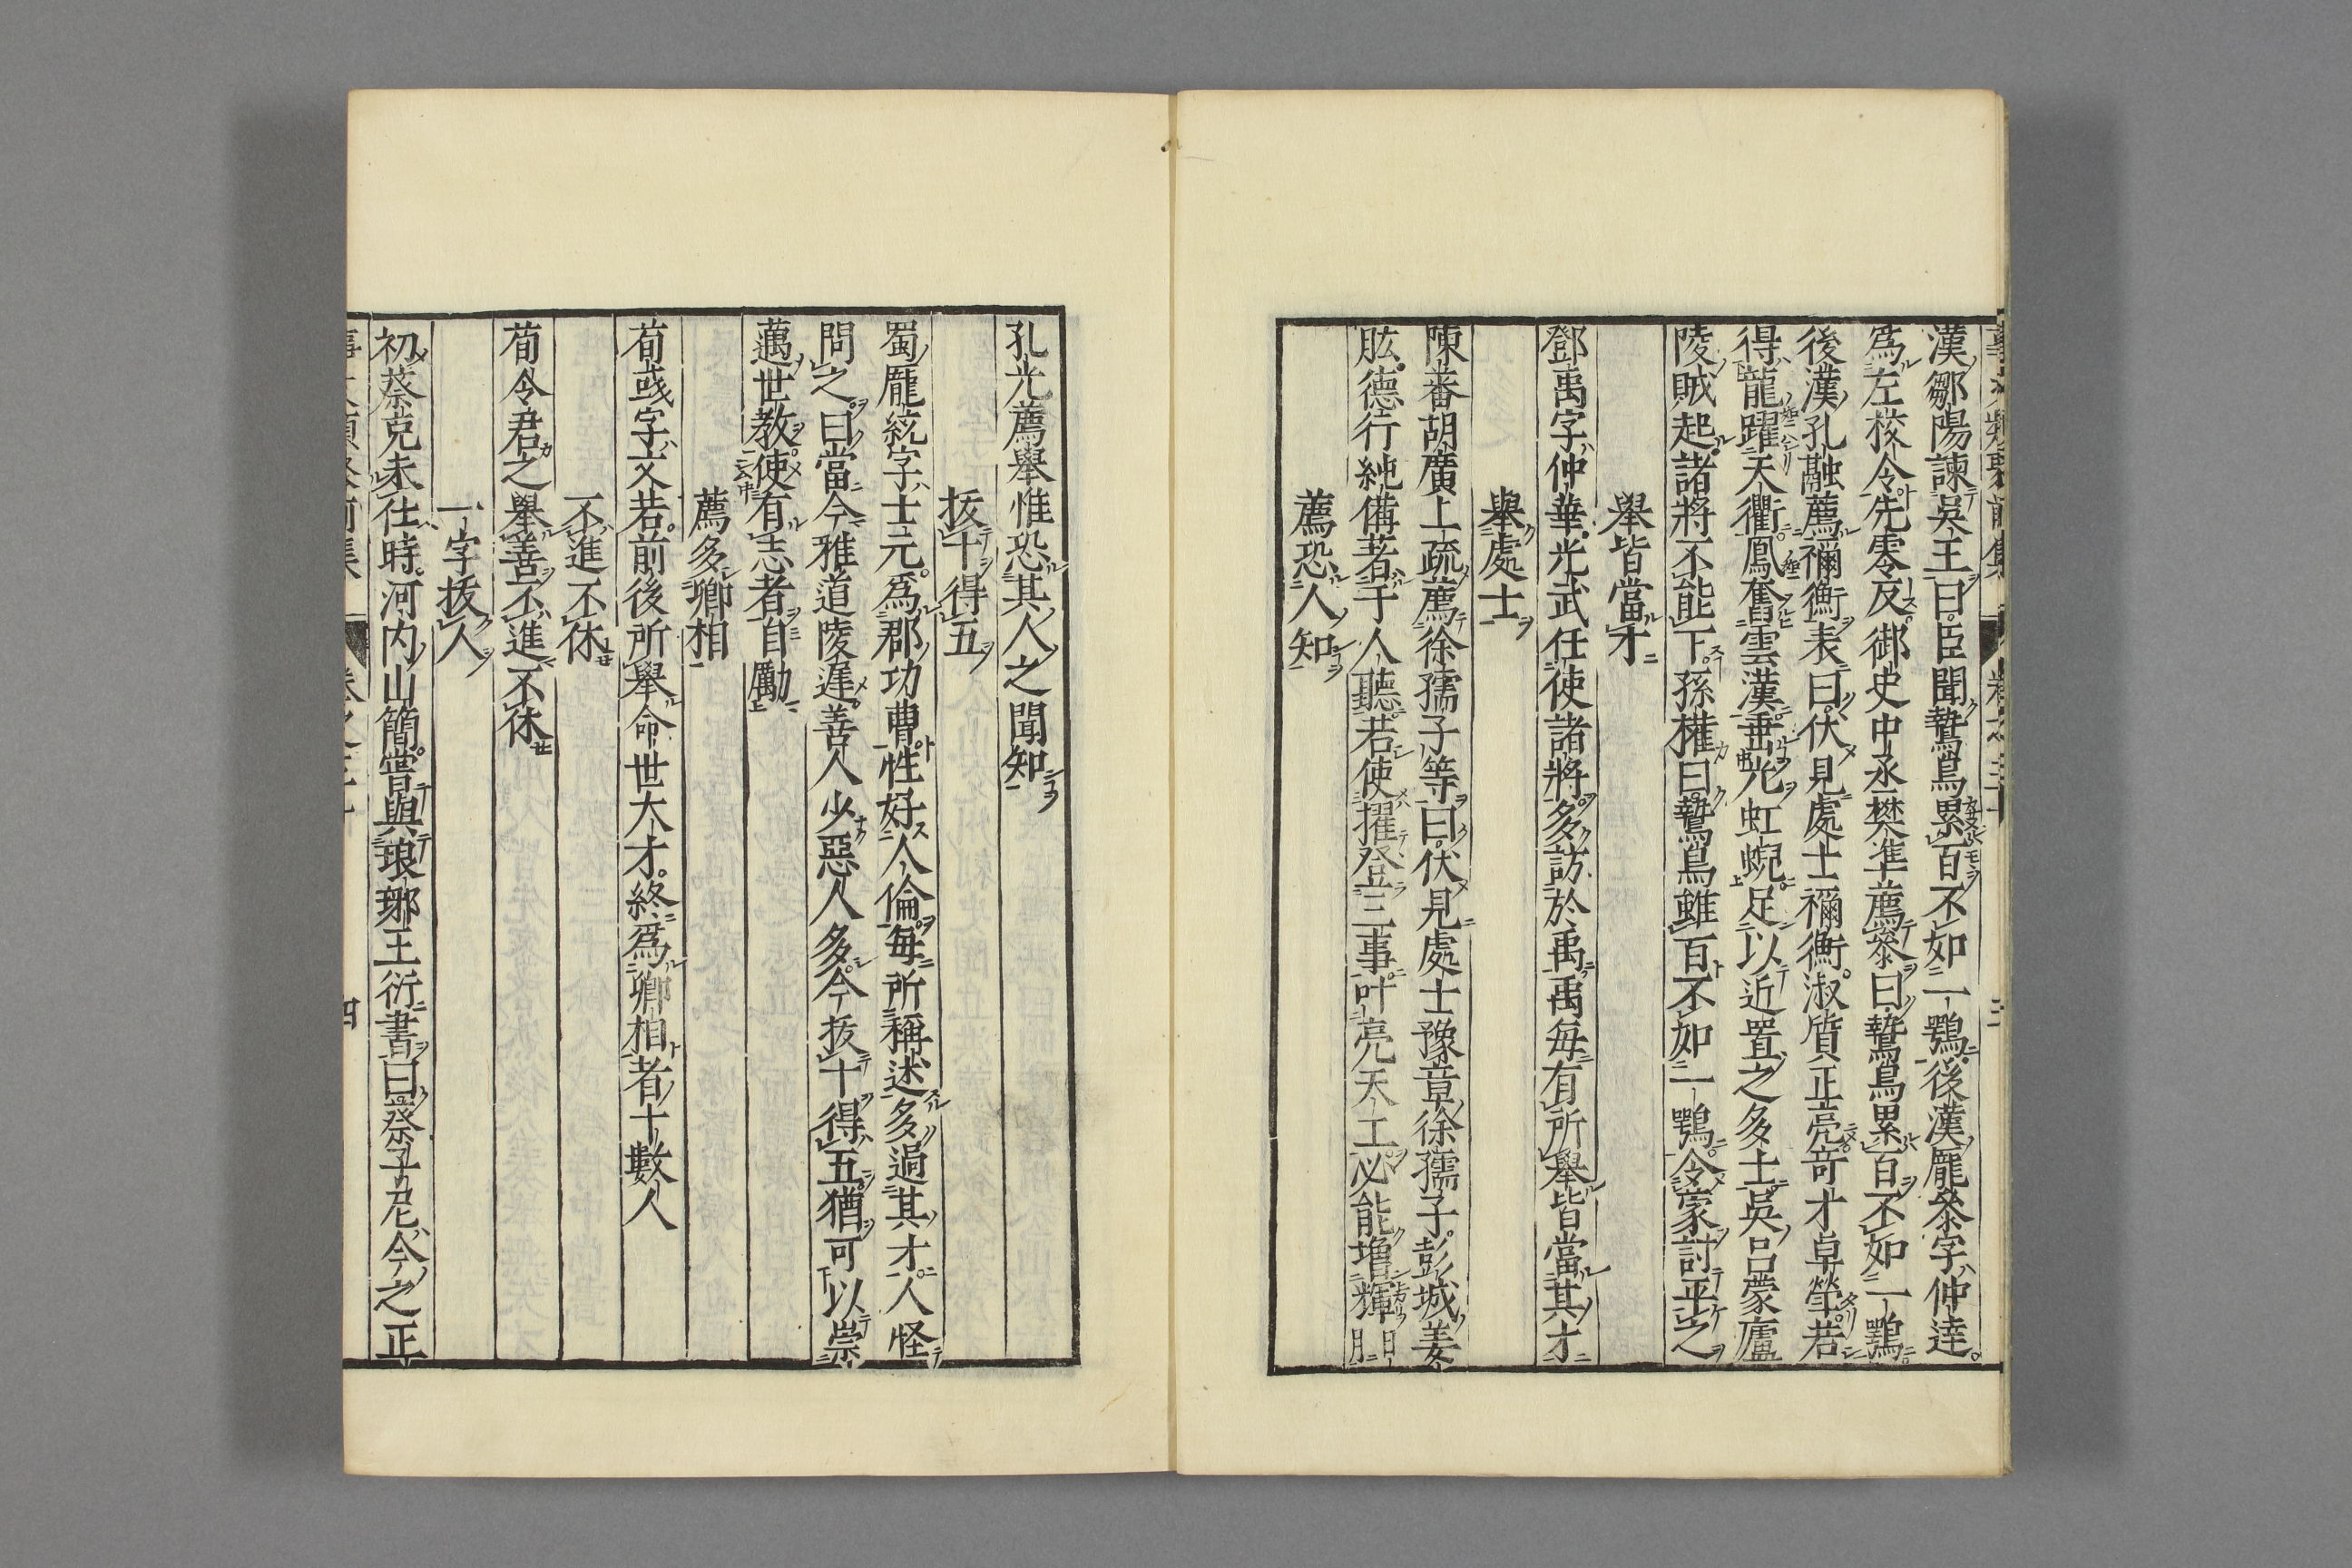 漢鄒陽諫吳王曰臣聞鷙鳥累百不如一鶚後漢龐參字仲達
爲左校令先零反御史中丞樊準薦參曰鷙鳥累百不如一鶚
後漢孔融薦禰衡表曰伏見處士禰衡淑質正亮竒才卓犖若
得龍躍天衢鳳奮雲漢垂光虹蜺足以近置之多士吳呂蒙廬
陵賊起諸將不能下孫權曰鷙鳥雖百不如一鶚令蒙討平之
舉皆當才
鄧禹字仲華光武任使諸將多訪於禹禹每有所舉皆當其才
舉處士
陳蕃胡廣上疏薦徐孺子等曰伏見處士豫章徐孺子彭城姜
肱德行純備著于人聽若使擢登三事叶亮天工必能增輝日月
薦恐人知
孔光薦舉惟恐其人之聞知
拔十得五
蜀龐統字士元爲郡功曹性好人倫每所稱述多過其才人怪
問之曰當今雅道陵遲善人少惡人多今拔十得五猶可以崇
邁世教使有志者自勵
薦多卿相
荀彧字文若前後所舉命世大才終爲卿相者十數人
不進不休
荀令君之舉善不進不休
一字拔人
初蔡克未仕時河内山簡嘗與琅琊王衍書曰蔡子尼今之正
四